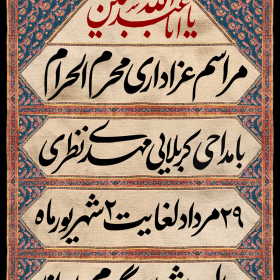 یا اباعبدالله الحسین
مراسم عزاداری محرم الحرام
با مداحی کربلایی مهدی نظری
۲۹ مرداد لغایت ۲ شهریور ماه